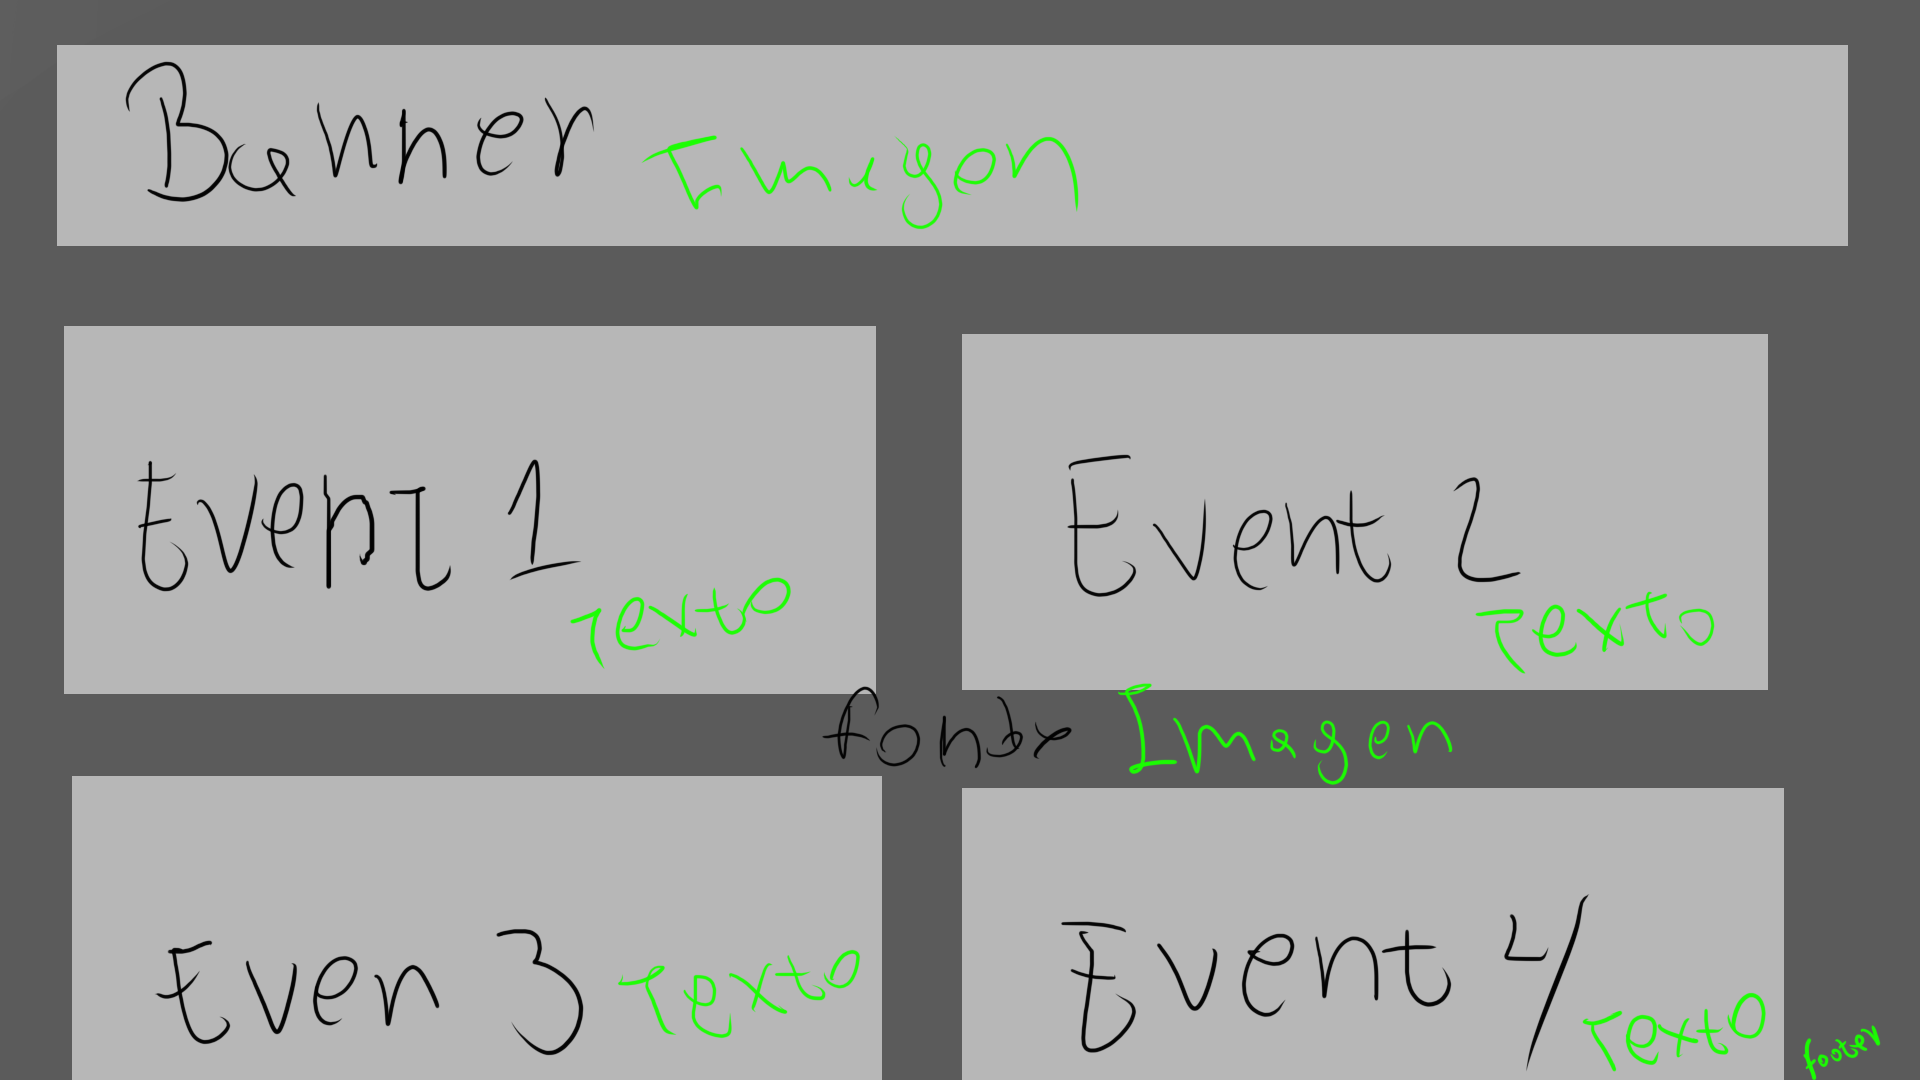 Banner Imagen
Event 1
Texto
Event 2
Texto
Imagen
Even 3 Texto
Event 4
Texto
footer